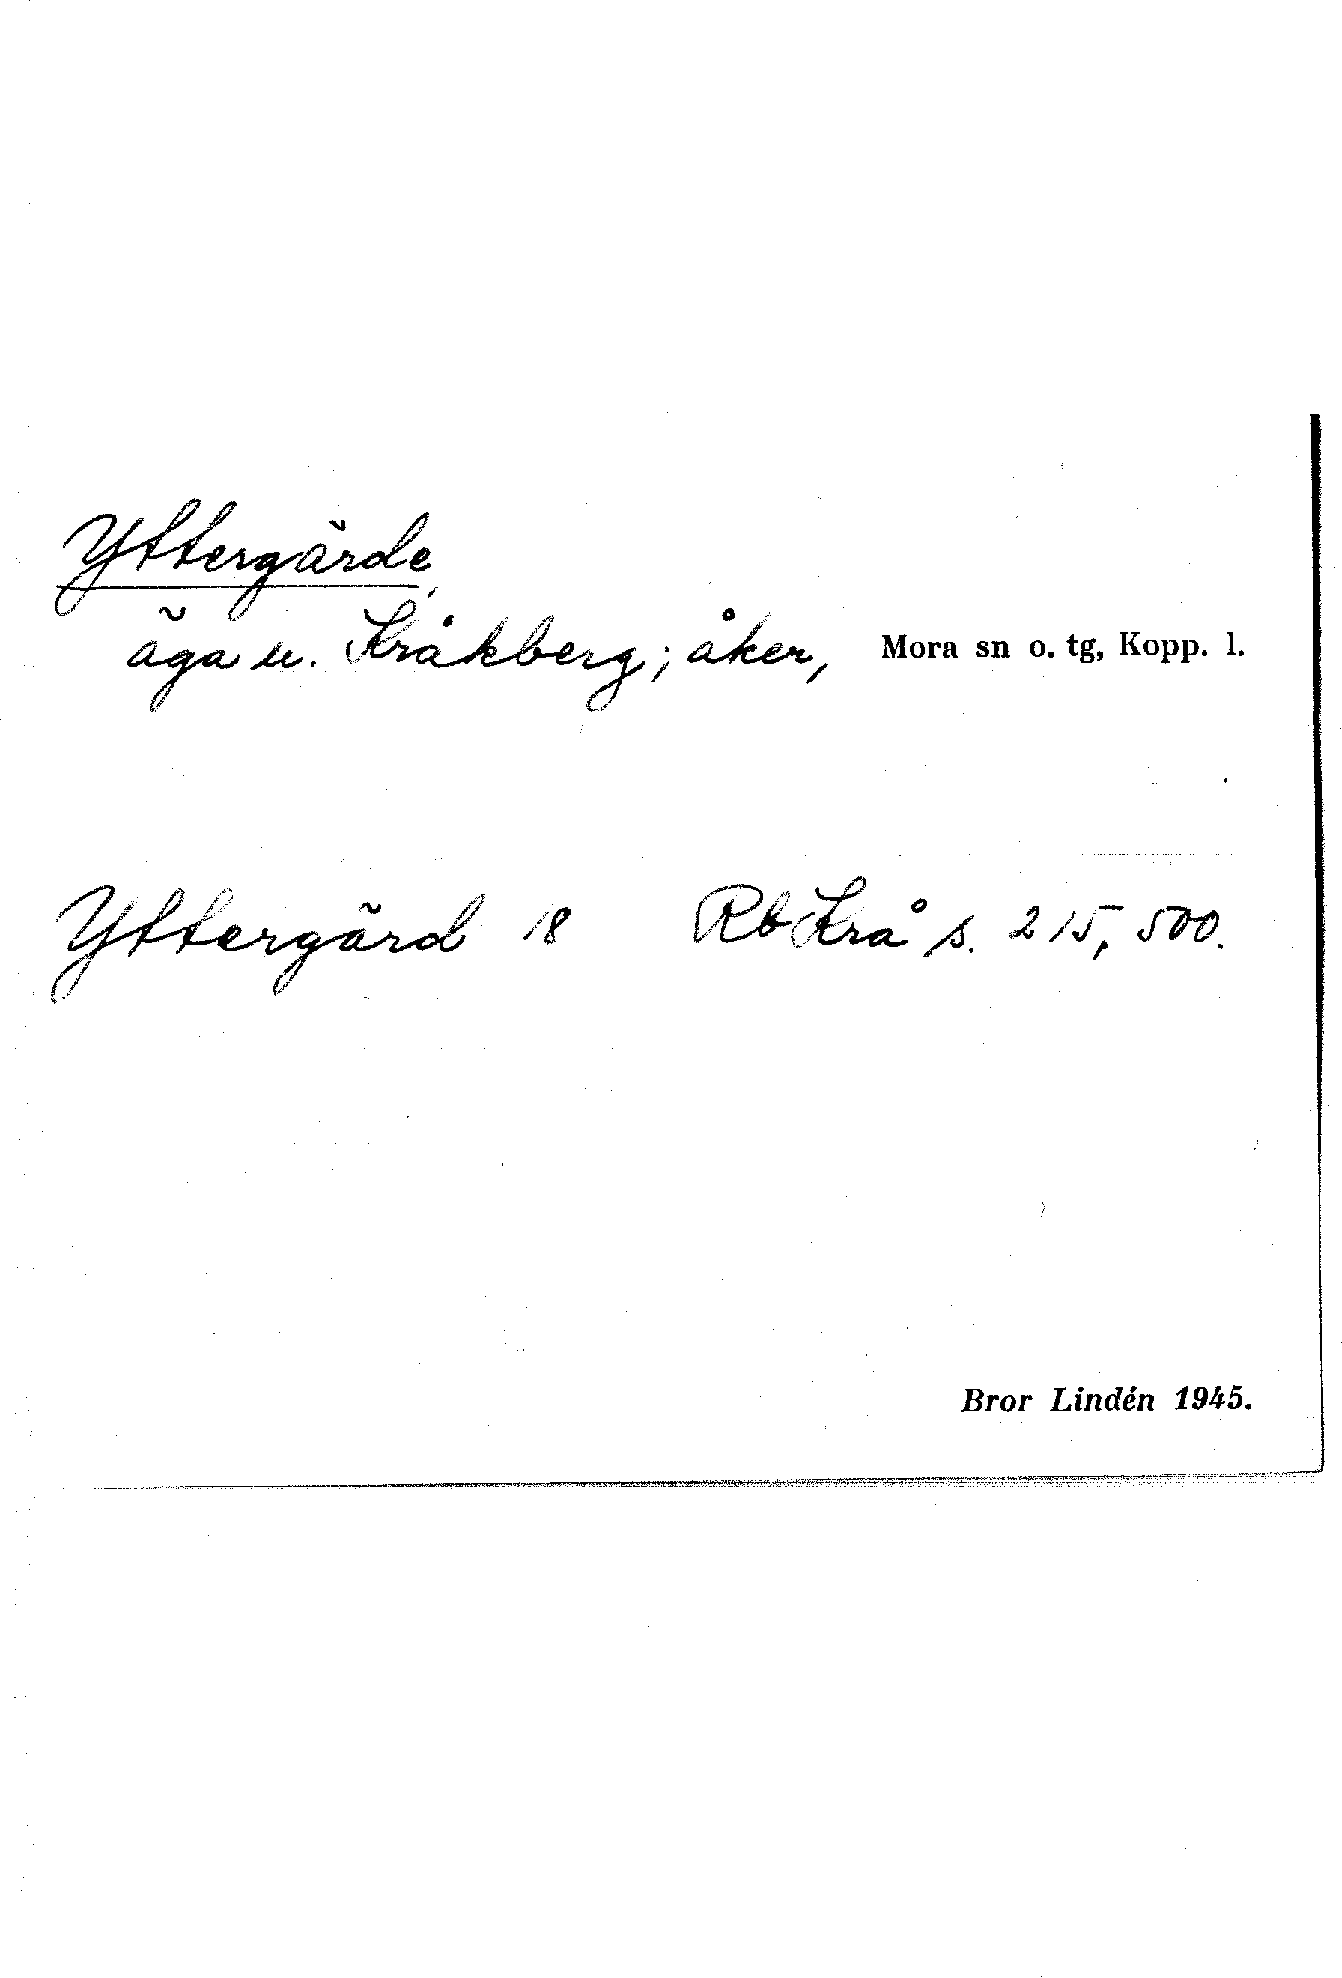 Yttergärde,
äga u. Kråkberg; åker, Mora sn o. tg, Kopp. l.
Yttergärd 18 Rb Krå s. 215, 500.
Bror Lindén 1945.